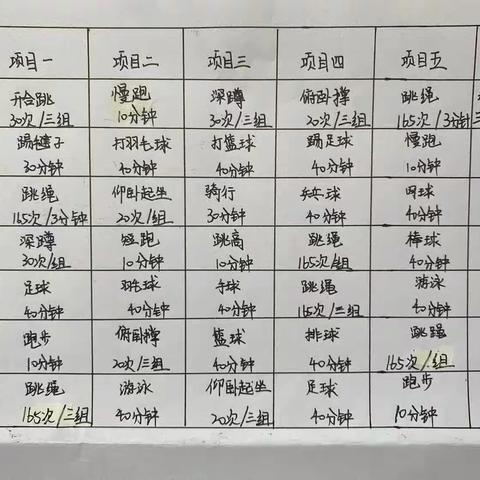 项目一 项目二 项目三 项目四 项目五
开合跳 慢跑 深蹲 俯卧撑 跳绳
30次/三组 10分钟 30次/三组 20次/三组 165次/3分钟
踢毽子 打羽毛球 打篮球 踢足球 慢跑
30分钟 40分钟 40分钟 40分钟 10分钟
跳绳 仰卧起坐 骑行 乒乓球 网球
165次/3分钟 20次/三组 30分钟 40分钟 40分钟
深蹲 短跑 跳高 跳绳 棒球
30次/三组 10分钟 10分钟 165次/组 40分钟
足球 羽毛球 手球 跳绳 游泳
40分钟 40分钟 40分钟 165次/三组 40分钟
跑步 俯卧撑 篮球 排球 跳绳
10分钟 20次/三组 40分钟 40分钟 165次/组
跳绳 游泳 仰卧起坐 足球 跑步
165次/三组 40分钟 20次/三组 40分钟 10分钟